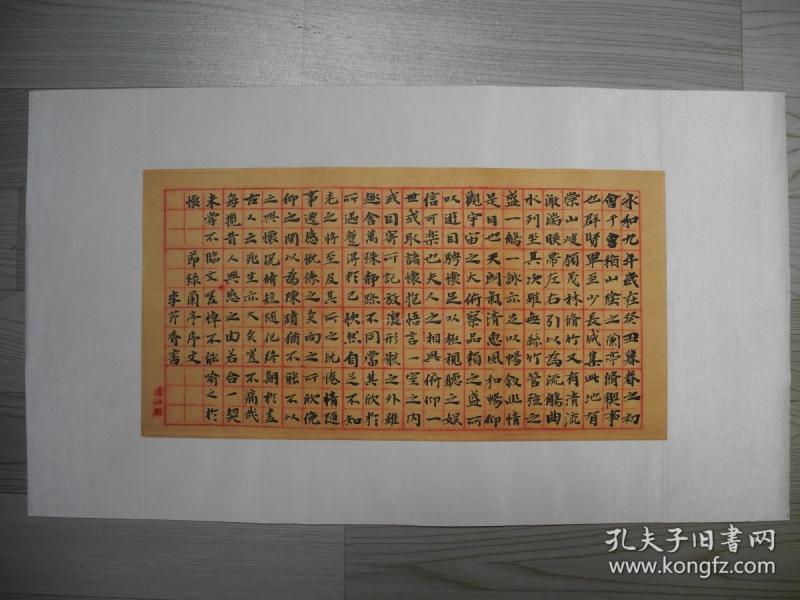 永和九年歲在癸丑暮春之初
會于會稽山陰之蘭亭脩禊事
也群賢畢至少長咸集此地有
崇山峻領茂林脩竹又有清流
激湍暎帶左右引以為流觴曲
水列坐其次雖無絲竹管弦之
盛一觴一詠亦足以暢敘幽情
是日也天朗氣清惠風和暢仰
觀宇宙之大俯察品類之盛所
以遊目騁懷足以極視聽之娛
信可樂也夫人之相與俯仰一
世或取諸懷抱悟言一室之內
或因寄所託放浪形骸之外雖
趣舍萬殊靜躁不同當其欣於
所遇蹔得於己怏然自足不知
老之將至及其所之既惓情隨
事遷感慨係之矣向之所欣俛
仰之間以為陳蹟猶不能不以
之興懷況脩短隨化終期於盡
古人云死生亦大矣豈不痛哉
每攬昔人興感之由若合一契
未嘗不臨文嗟悼不能喻之於
懷
節錄蘭亭序文
李芹香書
孔夫子旧書网
www.kongfz.com